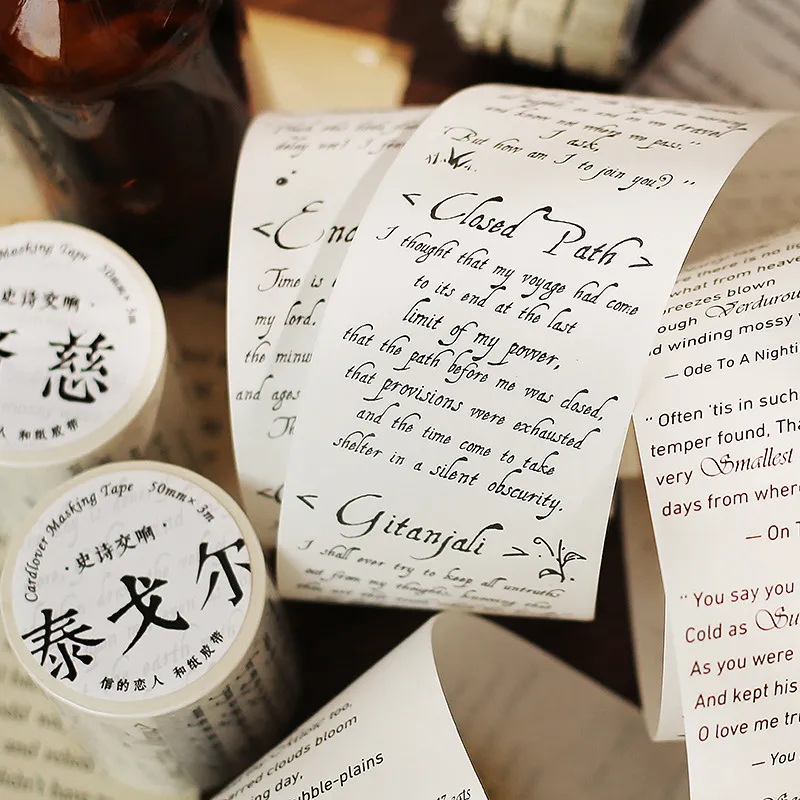 and know not where we pass."
I ask,
"But how am I to join you?"
< Closed Path >
I thought that my voyage had come
to its end at the last
limit of my power,
that the path before me was closed,
that provisions were exhausted
and the time come to take
shelter in a silent obscurity.
< Gitanjali >
I shall ever try to keep all untruths
out from my thoughts, knowing that
Time is
my lord.
the minu
and ages
Masking Tape 50mm×3m
史诗交响
慈
人 和纸胶带
Cardlover Masking Tape 50mm×3m
·史诗交响·
泰戈尔
信的恋人 和纸胶带
there is no li
what from heave
breezes blown
ough Verdurou
d winding mossy
— Ode To A Nighti
"Often 'tis in such
temper found, Tha
very Smallest
days from wher
— On T
"You say you
Cold as Su
As you were
And kept his
O love me tru
— You
too,
rred clouds bloom
ing day,
bble-plains